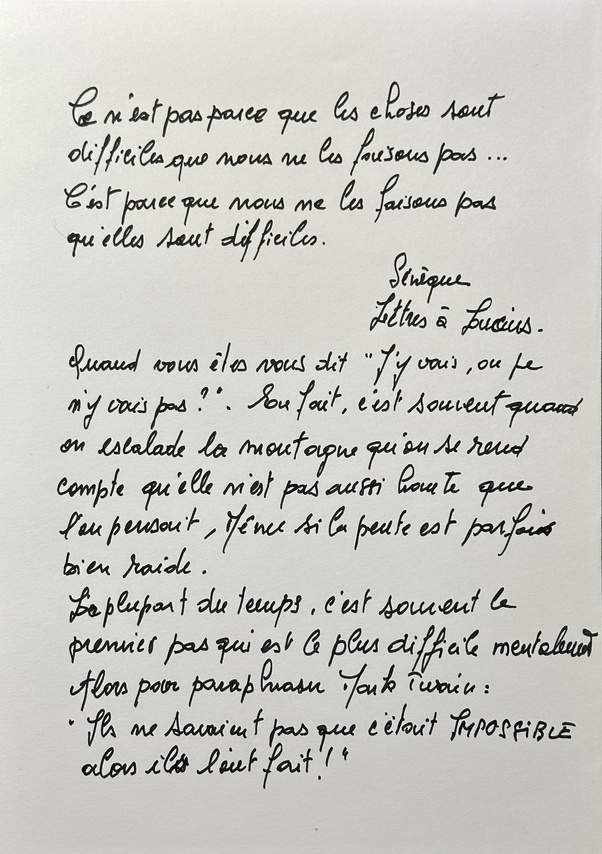 Ce n'est pas parce que les choses sont
difficiles que nous ne les faisons pas...
C'est parce que nous ne les faisons pas
qu'elles sont difficiles.
Sénèque
Lettres à Lucius.
Quand vous êtes vous dit "J'y vais, ou je
n'y vais pas ?". En fait, c'est souvent quand
on escalade la montagne qu'on se rend
compte qu'elle n'est pas aussi haute que
l'on pensait, Même si la pente est parfois
bien raide.
La plupart du temps, c'est souvent le
premier pas qui est le plus difficile mentalement
Alors pour paraphraser Mark Twain :
"Ils ne savaient pas que c'était IMPOSSIBLE
alors ils l'ont fait !"